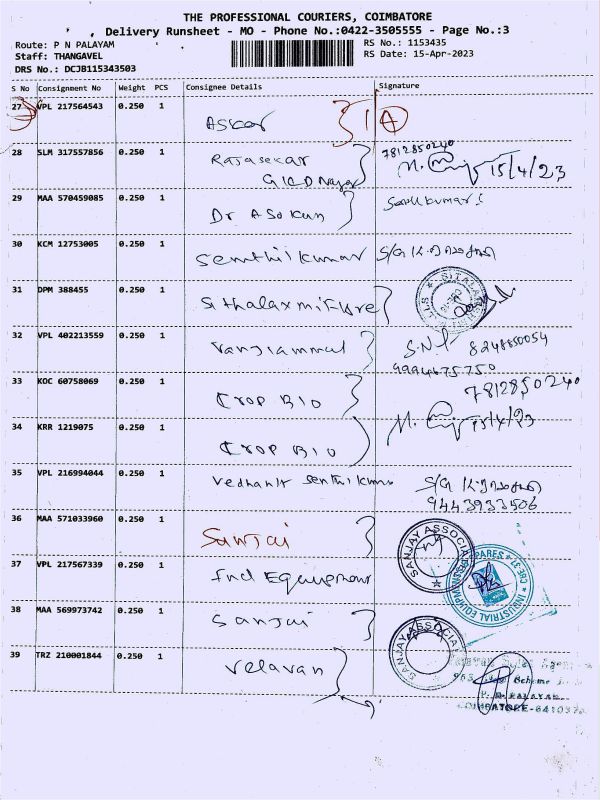 THE PROFESSIONAL COURIERS, COIMBATORE
Delivery Runsheet - MO - Phone No.:0422-3505555 - Page No.:3
Route: P N PALAYAM
RS No.: 1153435
Staff: THANGAVEL
RS Date: 15-Apr-2023
DRS No.: DCJB115343503
S No Consignment No Weight PCS Consignee Details Signature
27 VPL 217564543 0.250 1 Askar A
28 SLM 317557856 0.250 1 Rajasekar 7812850240
15/4/23
29 MAA 570459085 0.250 1 Dr Asokan
30 KCM 12753005 0.250 1 Senthilkumar
31 DPM 388455 0.250 1 Sithalaxmi
32 VPL 402213559 0.250 1 8248650054
9994675750
33 KOC 60758069 0.250 1 Crop Bio 7812850240
34 KRR 1219075 0.250 1 Crop Bio 15/4/23
35 VPL 216994044 0.250 1
9443933506
36 MAA 571033960 0.250 1 Sanjai SANJAY ASSOCIA
37 VPL 217567339 0.250 1 Ind Equipment INDUSTRIAL EQUIPMENTS
38 MAA 569973742 0.250 1 Sanjai
39 TRZ 210001844 0.250 1 Velavan SANJAY ASSOCIA